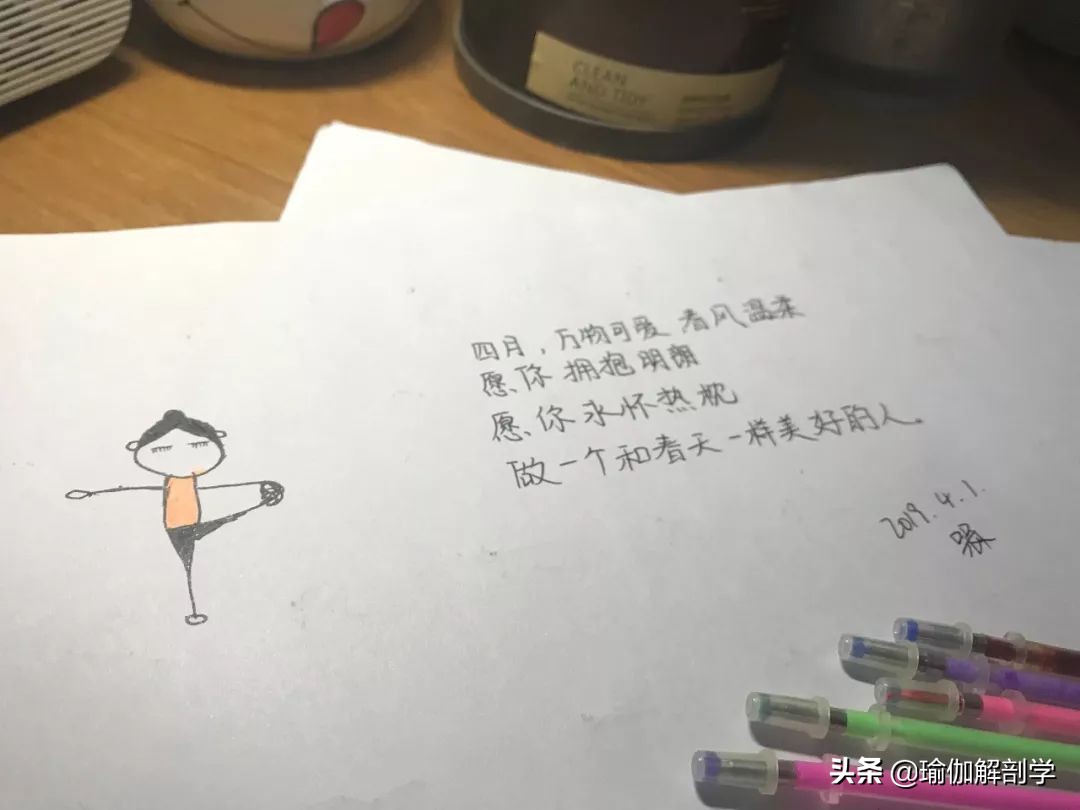 CLEAN
AND TIDY
四月，万物可爱 春风温柔
愿你拥抱明朗
愿你永怀热枕
做一个和春天一样美好的人。
2019.4.1.
头条 @瑜伽解剖学